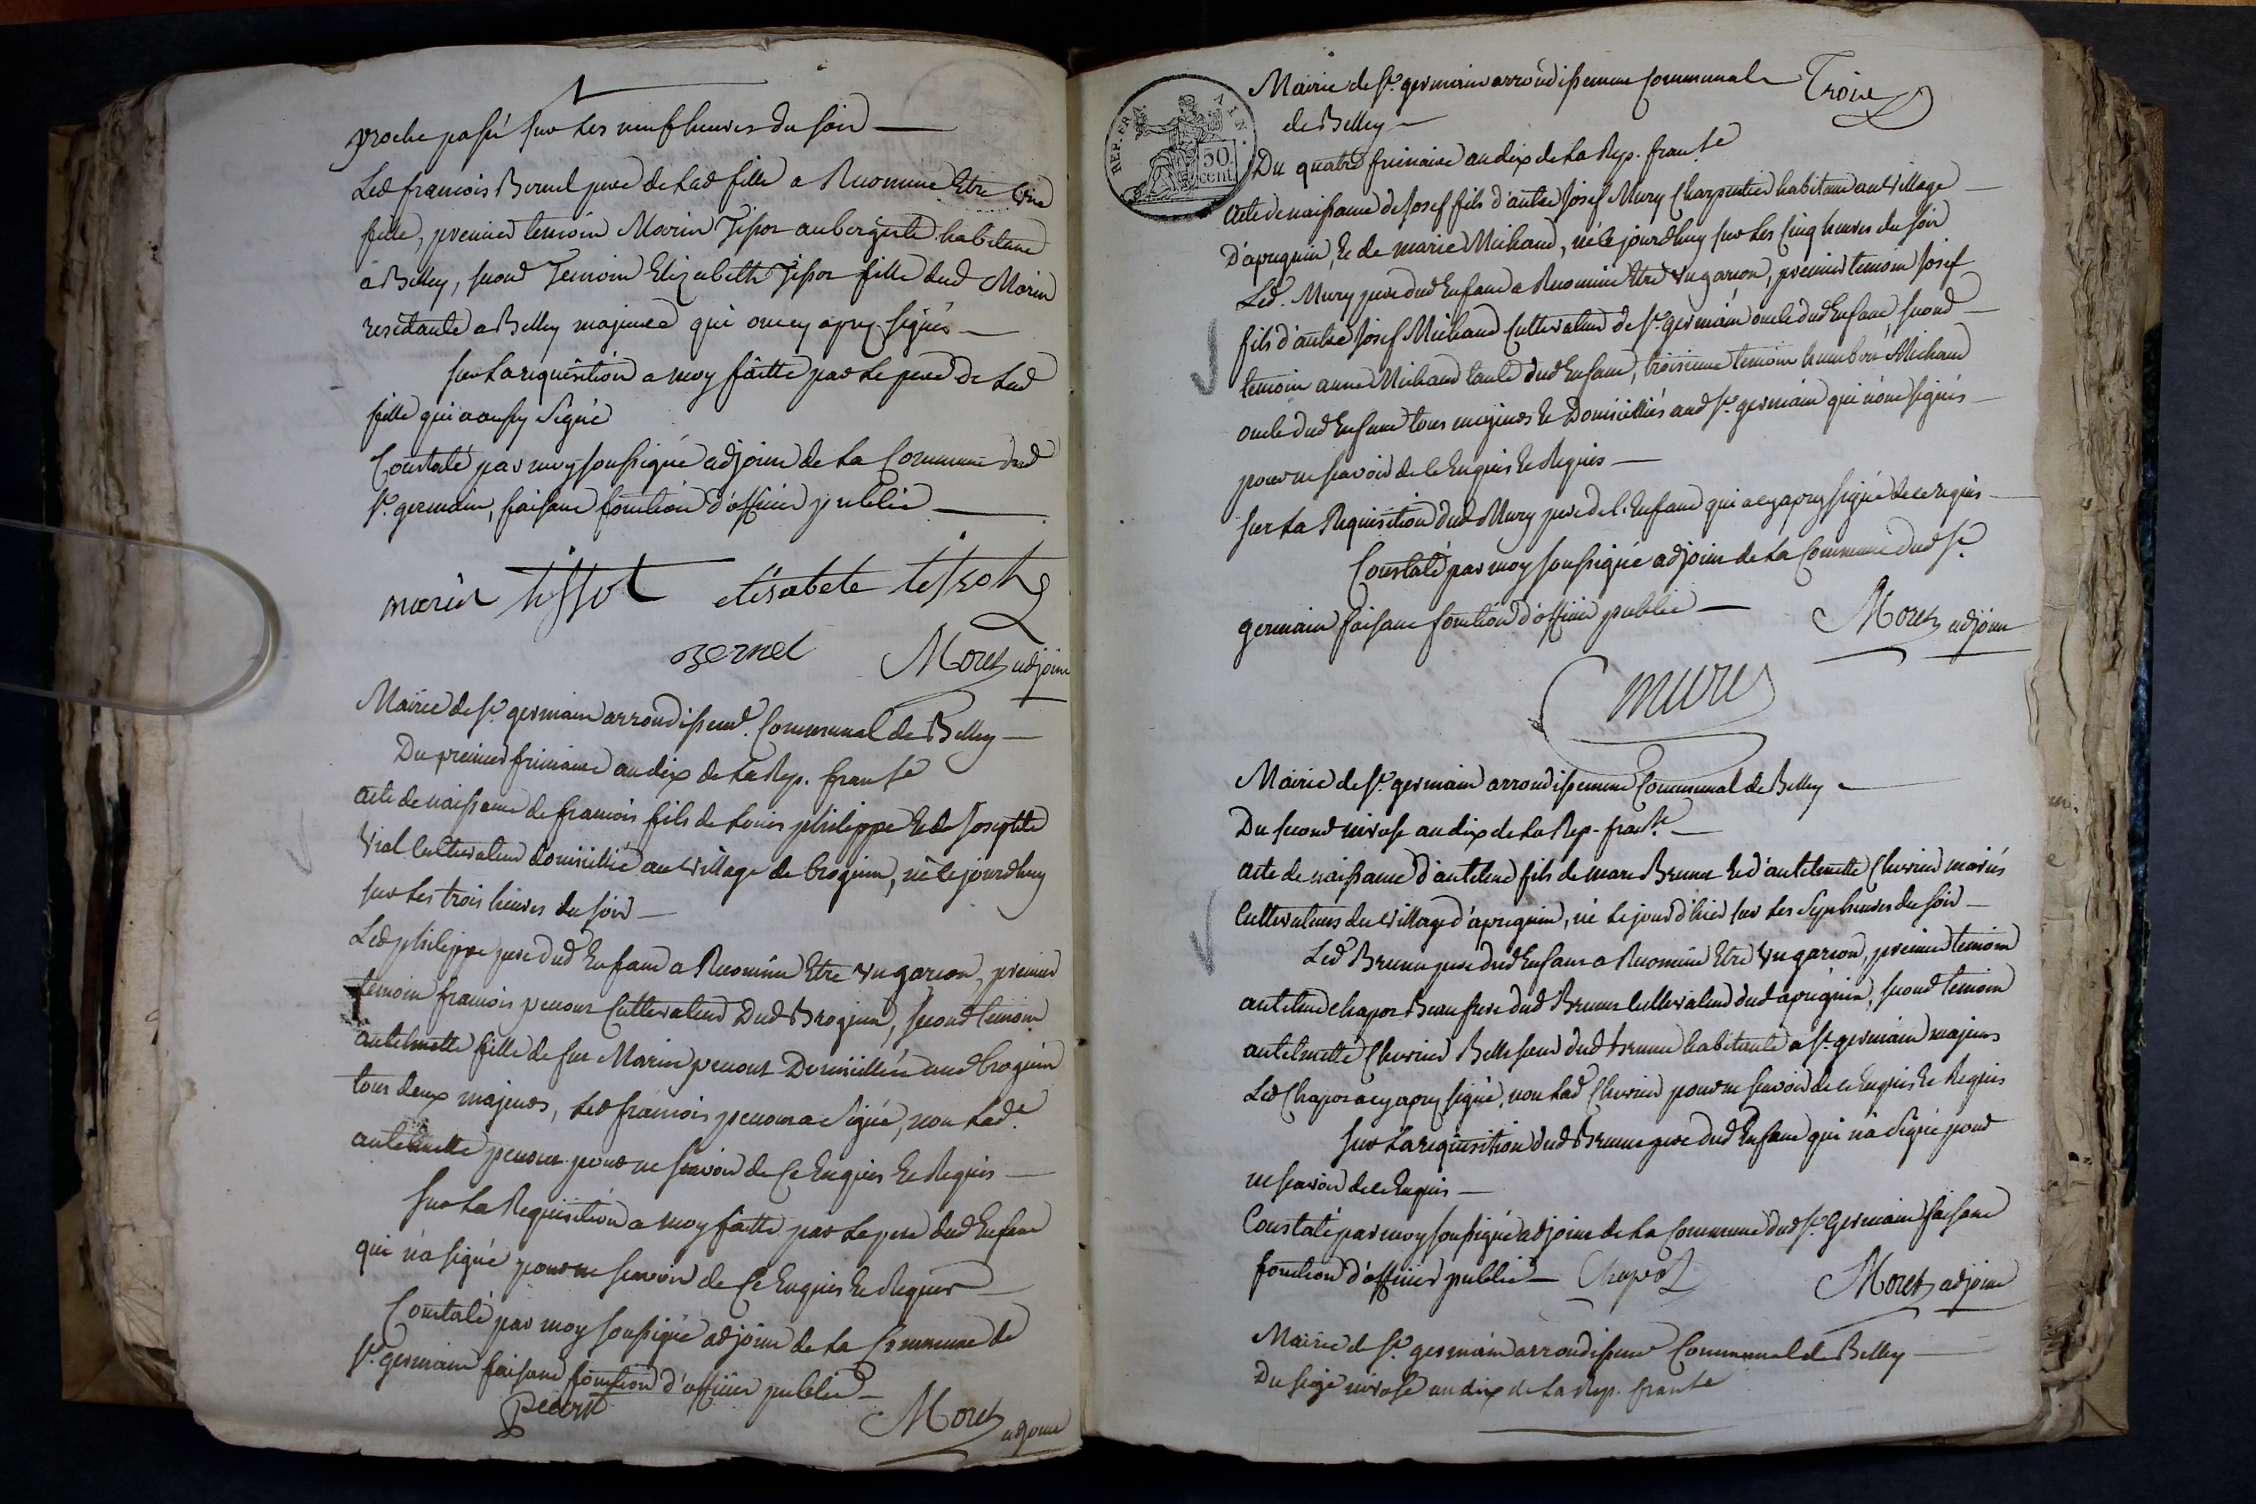 proche passé sur les neuf heures du soir
Led françois Bernel pere de lad fille a Reconnu Etre une
fille, premier temoin Marin Tissot aubergiste habitant
à Belley, second Temoin Elizabeth Tissot fille dud Marin
residante a Belley majeure qui ont cy apres signés
sur la requisition a moy faitte par le pere de lad
fille qui a aussy signé
Constaté par moy soussigné adjoint de la Commune dud
St. germain, faisant fonction d'officier public
marin tissot elisabete tissot
Bernel Moret adjoint
Mairie de St. germain arrondissemt. Communal de Belley
Du premier frimaire an dix de la Rep. franse
acte de naissance de françois fils de Louis philippe et de Josephte
Vial Cultivateur domicillié au village de brognin, né le jourdhuy
sur les trois heures du soir
Led philippe pere dud Enfant a Reconnu Etre un garcon, premier
temoin francois penont Cultivateur Dud Brognin, second temoin
antelmette fille de feu Marin penont Domicilliée aud brognin
tous deux majeurs, led francois penont a signé, non lade.
antelmette penont pour ne scavoir de Ce Enquis Et Requis
sur la Requisition a moy faitte par le pere dud Enfant
qui n'a signé pour ne scavoir de Ce Enquis Et Requis
Constaté par moy soussigné adjoint de la Commune de
St. germain faisant fonction d'officier public
Moret adjoint
Mairie de St. germain arrondissement Communal Troix
de Belley
REP. FRA. 50 cent.
Du quatre frimaire an dix de la Rep. franse
acte de naissance de Josef fils d'autre Josef Mury Charpentier habitant au village
D'apregnin, et de marie Michaud, né le jourdhuy sur les Cinq heures du soir
Led. Mury pere dud Enfant a Reconnu Etre un garcon, premier temoin Josef
fils d'autre Josef Michaud Cultivateur de St. germain oncle dud Enfant, second
temoin anne Michaud tante dud Enfant, troisieme temoin humbert Michaud
oncle dud Enfant tous majeurs et Domicilliés aud St. germain qui n'ont signés
pour ne scavoir de Ce Enquis Et Requis
sur la Requisition dud Mury pere de l'Enfant qui a cy apres signé de ce requis
Constaté par moy soussigné adjoint de la Commune dud St.
germain faisant fonction d'officier public Moret adjoint
mury
Mairie de St. germain arrondissement Communal de Belley
Du second nivose an dix de la Rep. franse.
acte de naissance d'antelme fils de marc Brunet et d'antelmette Chevrier mariés
Cultivateurs du village d'apregnin, né le jour d'hier sur les Sept heures du soir
Led Brunet pere dud Enfant a Reconnu Etre un garcon, premier temoin
antelme Chapot Beau frere dud Brunet Cultivateur dud apregnin, second temoin
antelmette Chevrier Belle soeur dud brunet habitante a St. germain majeurs
Led Chapot a cy apres signé, non lad Chevrier pour ne scavoir de ce Enquis Et Requis
sur la requisition dud Brunet pere dud Enfant qui n'a signé pour
ne scavoir de ce Enquis
Constaté par moy soussigné adjoint de la Commune dud St. Germain faisant
fonction d'officier public Chapot Moret adjoint
Mairie de St. germain arrondissement Communal de Belley
Du seize nivose an dix de la Rep. franse